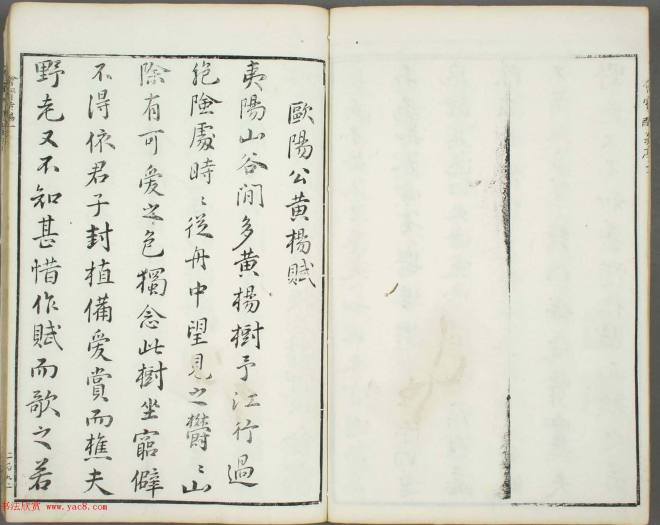 歐陽公黄楊賦
夷陽山谷間多黄楊樹予江行過
絶險處時〻從舟中望見之鬱〻山
際有可愛之色獨念此樹生窮僻
不得依君子封植備愛賞而樵夫
野老又不知甚惜作賦而歌之若
书法欣赏 www.yac8.com